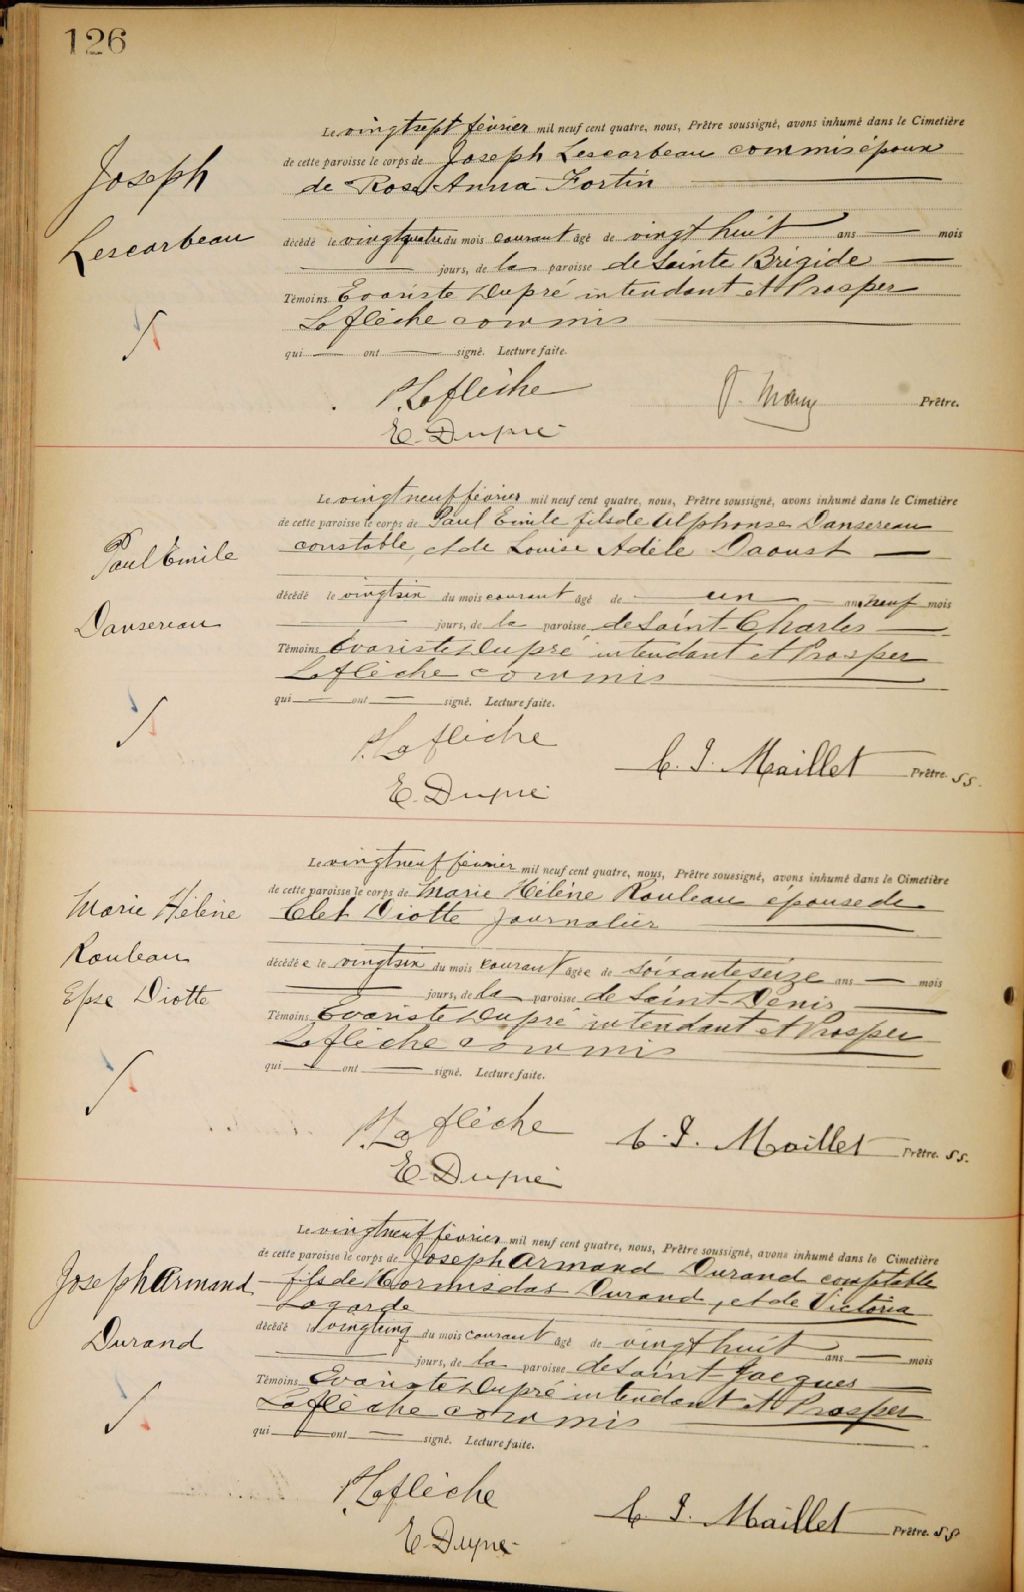 126
Joseph
Lescarbeau
Le vingtsept février mil neuf cent quatre, nous, Prêtre soussigné, avons inhumé dans le Cimetière
de cette paroisse le corps de Joseph Lescarbeau commis époux
de Rose Anna Fortin
décédé le vingtquatre du mois courant âgé de vingt huit ans mois
jours, de la paroisse de Sainte Brigide
Témoins Evariste Dupré intendant et Prosper
Laflèche commis
qui ont signé. Lecture faite.
P. Laflèche
Prêtre.
E. Dupré
Paul Emile
Dansereau
Le vingtneuf février mil neuf cent quatre, nous, Prêtre soussigné, avons inhumé dans le Cimetière
de cette paroisse le corps de Paul Emile fils de Alphonse Dansereau
constable, et de Louise Adèle Daoust
décédé le vingtsix du mois courant âgé de un ans neuf mois
jours, de la paroisse de Saint-Charles
Témoins Evariste Dupré intendant et Prosper
Laflèche commis
qui ont signé. Lecture faite.
P. Laflèche
C. J. Maillet Prêtre. S S.
E. Dupré
Marie Hélène
Rouleau
Epse Diotte
Le vingtneuf février mil neuf cent quatre, nous, Prêtre soussigné, avons inhumé dans le Cimetière
de cette paroisse le corps de Marie Hélène Rouleau épouse de
Clet Diotte journalier
décédée le vingtsix du mois courant âgée de soixanteseize ans mois
jours, de la paroisse de Saint-Denis
Témoins Evariste Dupré intendant et Prosper
Laflèche commis
qui ont signé. Lecture faite.
P. Laflèche
C. J. Maillet Prêtre. S S.
E. Dupré
Joseph Armand
Durand
Le vingtneuf février mil neuf cent quatre, nous, Prêtre soussigné, avons inhumé dans le Cimetière
de cette paroisse le corps de Joseph Armand Durand comptable
fils de Hormisdas Durand, et de Victoria
Lagarde
décédé le vingtcinq du mois courant âgé de vingthuit ans mois
jours, de la paroisse de Saint-Jacques
Témoins Evariste Dupré intendant et Prosper
Laflèche commis
qui ont signé. Lecture faite.
P. Laflèche
C. J. Maillet Prêtre. S S
E. Dupré